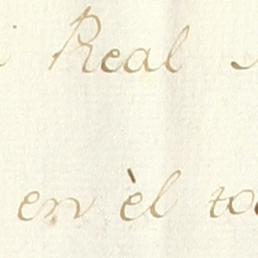 Real
en èl